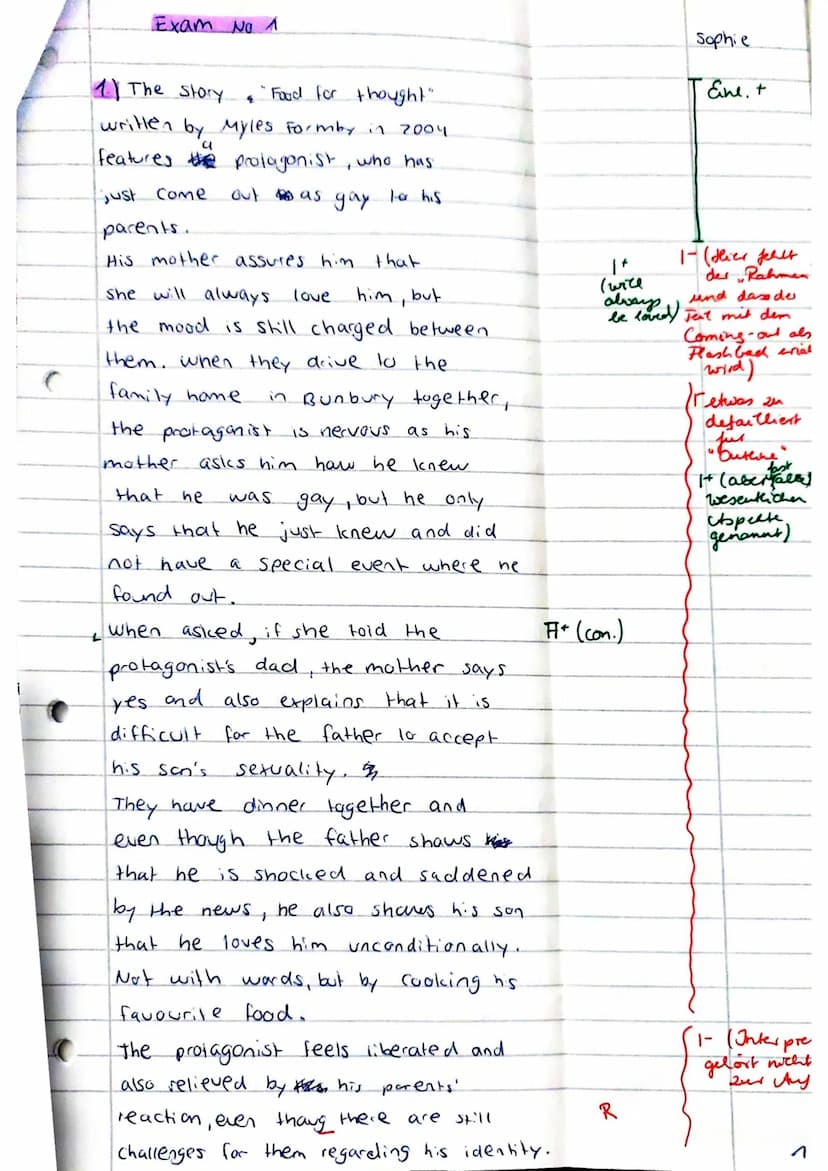 Exam No 1
Sophie
1.) The story, "Food for thought"
written by Myles Formby in 2004
features a protagonist, who has
just come out as gay to his
parents.
His mother assures him that
she will always love him, but
the mood is still charged between
them. when they drive to the
family home in Bunbury together,
the protaganist is nervous as his
mother asks him how he knew
that he was gay, but he only
says that he just knew and did
not have a special event where he
found out.
When asked, if she told the
protagonist's dad, the mother says
yes and also explains that it is
difficult for the father to accept
his son's sexuality.
They have dinner together and
even though the father shows
that he is shocked and saddened
by the news, he also shows his son
that he loves him unconditionally.
Not with words, but by cooking his
favourite food.
The protagonist feels liberated and
also relieved by his parents'
reaction, even thoug there are still
challenges for them regarding his identity.
Einl. +
I+
(will
always
be loved)
I- (Hier fehlt
der "Rahmen
und dass der
Text mit dem
Coming-out als
Flashback
wird)
etwas zu
detailliert
für
"Outline"
I+ (aber fast alle
wesentlichen
Aspekte
genannt)
(con.)
I- (Interpre
gehört nicht
zur
R
1